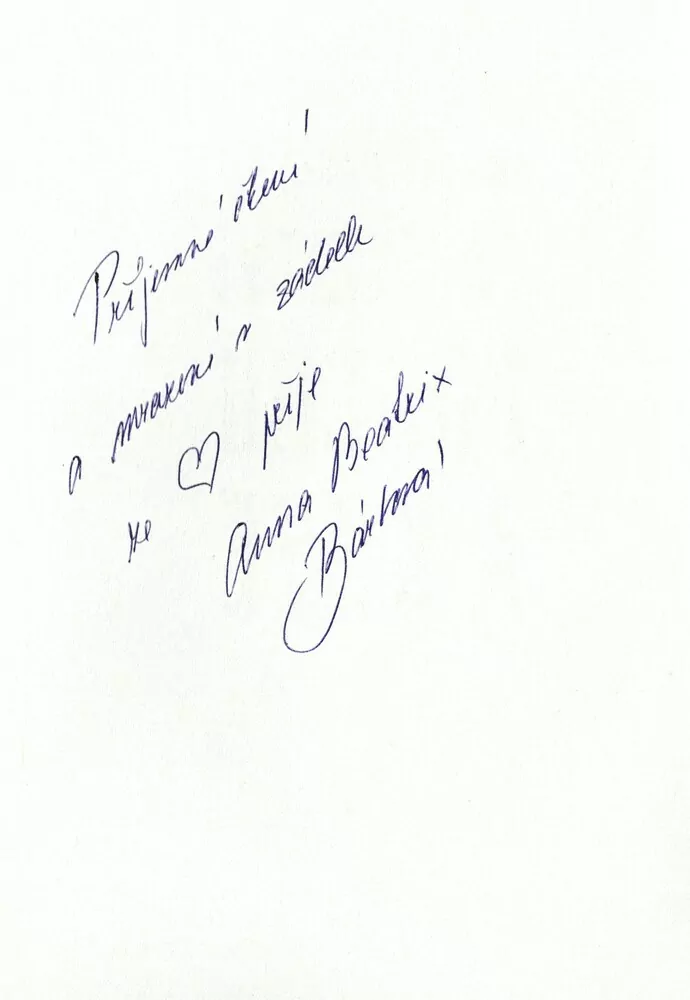 Příjemné čtení
a mrazení v zádech
ze ♡ přeje
Anna Beatrix
Bártová